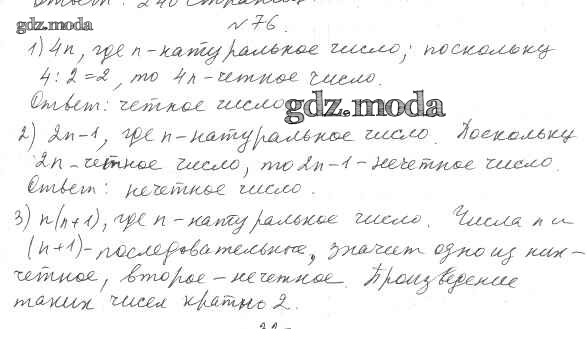 Ответ: 240 страниц
gdz.moda
№76.
1) 4n, где n - натуральное число; поскольку
4 : 2 = 2, то 4n - четное число.
Ответ: четное число
gdz.moda
2) 2n-1, где n - натуральное число. Поскольку
2n - четное число, то 2n-1 - нечетное число.
Ответ: нечетное число.
3) n(n+1), где n - натуральное число. Числа n и
(n+1) - последовательные, значит одно из них -
четное, второе - нечетное. Произведение
таких чисел кратно 2.